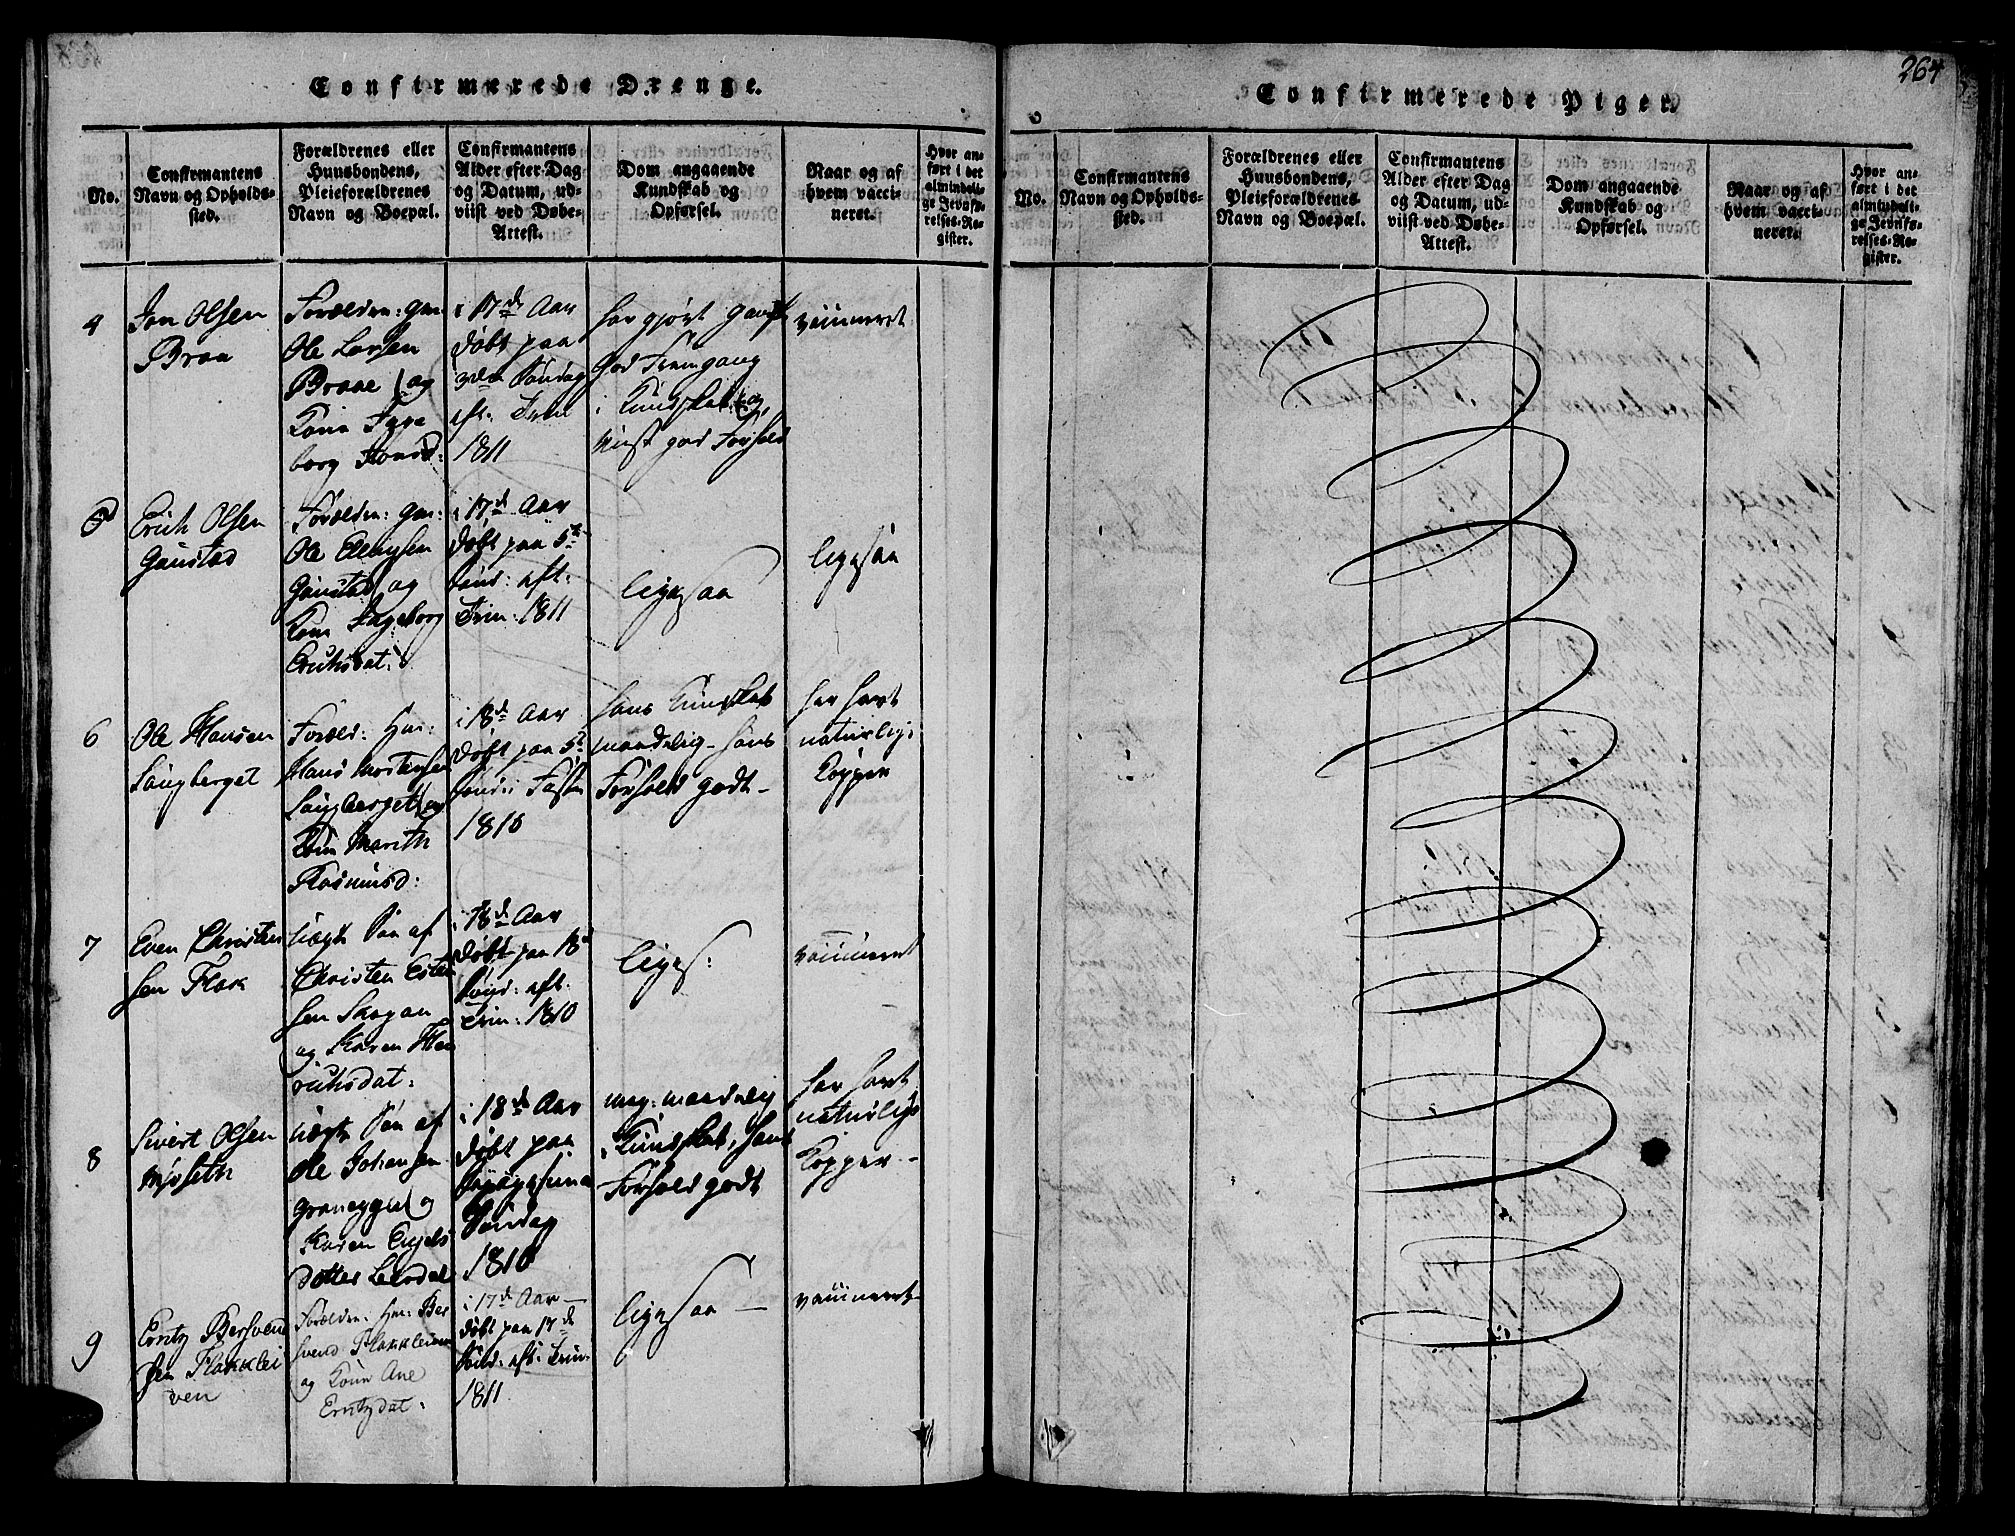 Confirmerede Drenge.
No.
Confirmantens
Navn og Opholds-
sted.
Forældrenes eller
Huusbondens,
Pleieforældrenes
Navn og Boepæl.
Confirmantens
Alder efter Dag
og Datum, ud-
viist ved Døbe-
Attest.
Dom angaaende
Kundskab og
Opførsel.
Naar og af
hvem vacci-
neret.
Hvor an-
ført i det
almindeli-
ge Jevnfø-
relses-Re-
gister.
4
Jon Olsen
Braa
Forældre: Gm:
Ole Larsen
Braae og
Kone Inge
borg Jonsd:
i 17de Aar
døbt paa
3die Søndag
eft. Trin
1811
har gjort gansk
god Fremgang
i Kundskab og
viist god Forhold
vaccineret
5
Erich Olsen
Gaustad
Forældre: Gm:
Ole Ellevsen
Gaustad og
Kone Ingeborg
Erichsdat:
i 17de Aar
døbt paa 5te
Sønd: eft.
Trin: 1811
ligesaa
ligesaa
6
Ole Hansen
Langberget
Foræld: Hm:
Hans Mortensen
Langberget og
Kone Marith
Rasmusd:
i 18de Aar
døbt paa 5te
Sønd: i Faste
1810
hans Kundskab
maadelig - hans
Forhold godt -
har havt
naturlige
Kopper
7
Even Christen
sen Flak
uægte Søn af
Christen Esten
sen Skogan
og Karen Hen
richsdat:
i 18de Aar
døbt paa 18de
Sønd: eft.
Trin: 1810
liges:
vaccineret
8
Sivert Olsen
Mysseth
uægte Søn af
Ole Johansen
Graneggen og
Karen Engels
dotter Leerdal
i 18de Aar
døbt paa
Søndag
1810
meg: maadelig
Kundskab, hans
Forhold godt
har havt
naturlige
Kopper -
9
Erntz Bersvend
sen Flakklei
ven
Forældre: Hm: Ber
svend Flakkleiven
og Kone Ane
Erntzdat:
i 17de Aar -
døbt paa 17de
Sønd: eft: Trin.
1811
ligesaa -
vaccineret
264
Confirmerede Piger.
No.
Confirmantens
Navn og Opholds-
sted.
Forældrenes eller
Huusbondens,
Pleieforældrenes
Navn og Boepæl.
Confirmantens
Alder efter Dag
og Datum, ud-
viist ved Døbe-
Attest.
Dom angaaende
Kundskab og
Opførsel.
Naar og af
hvem vacci-
neret.
Hvor an-
ført i det
almindeli-
ge Jevnfø-
relses-Re-
gister.